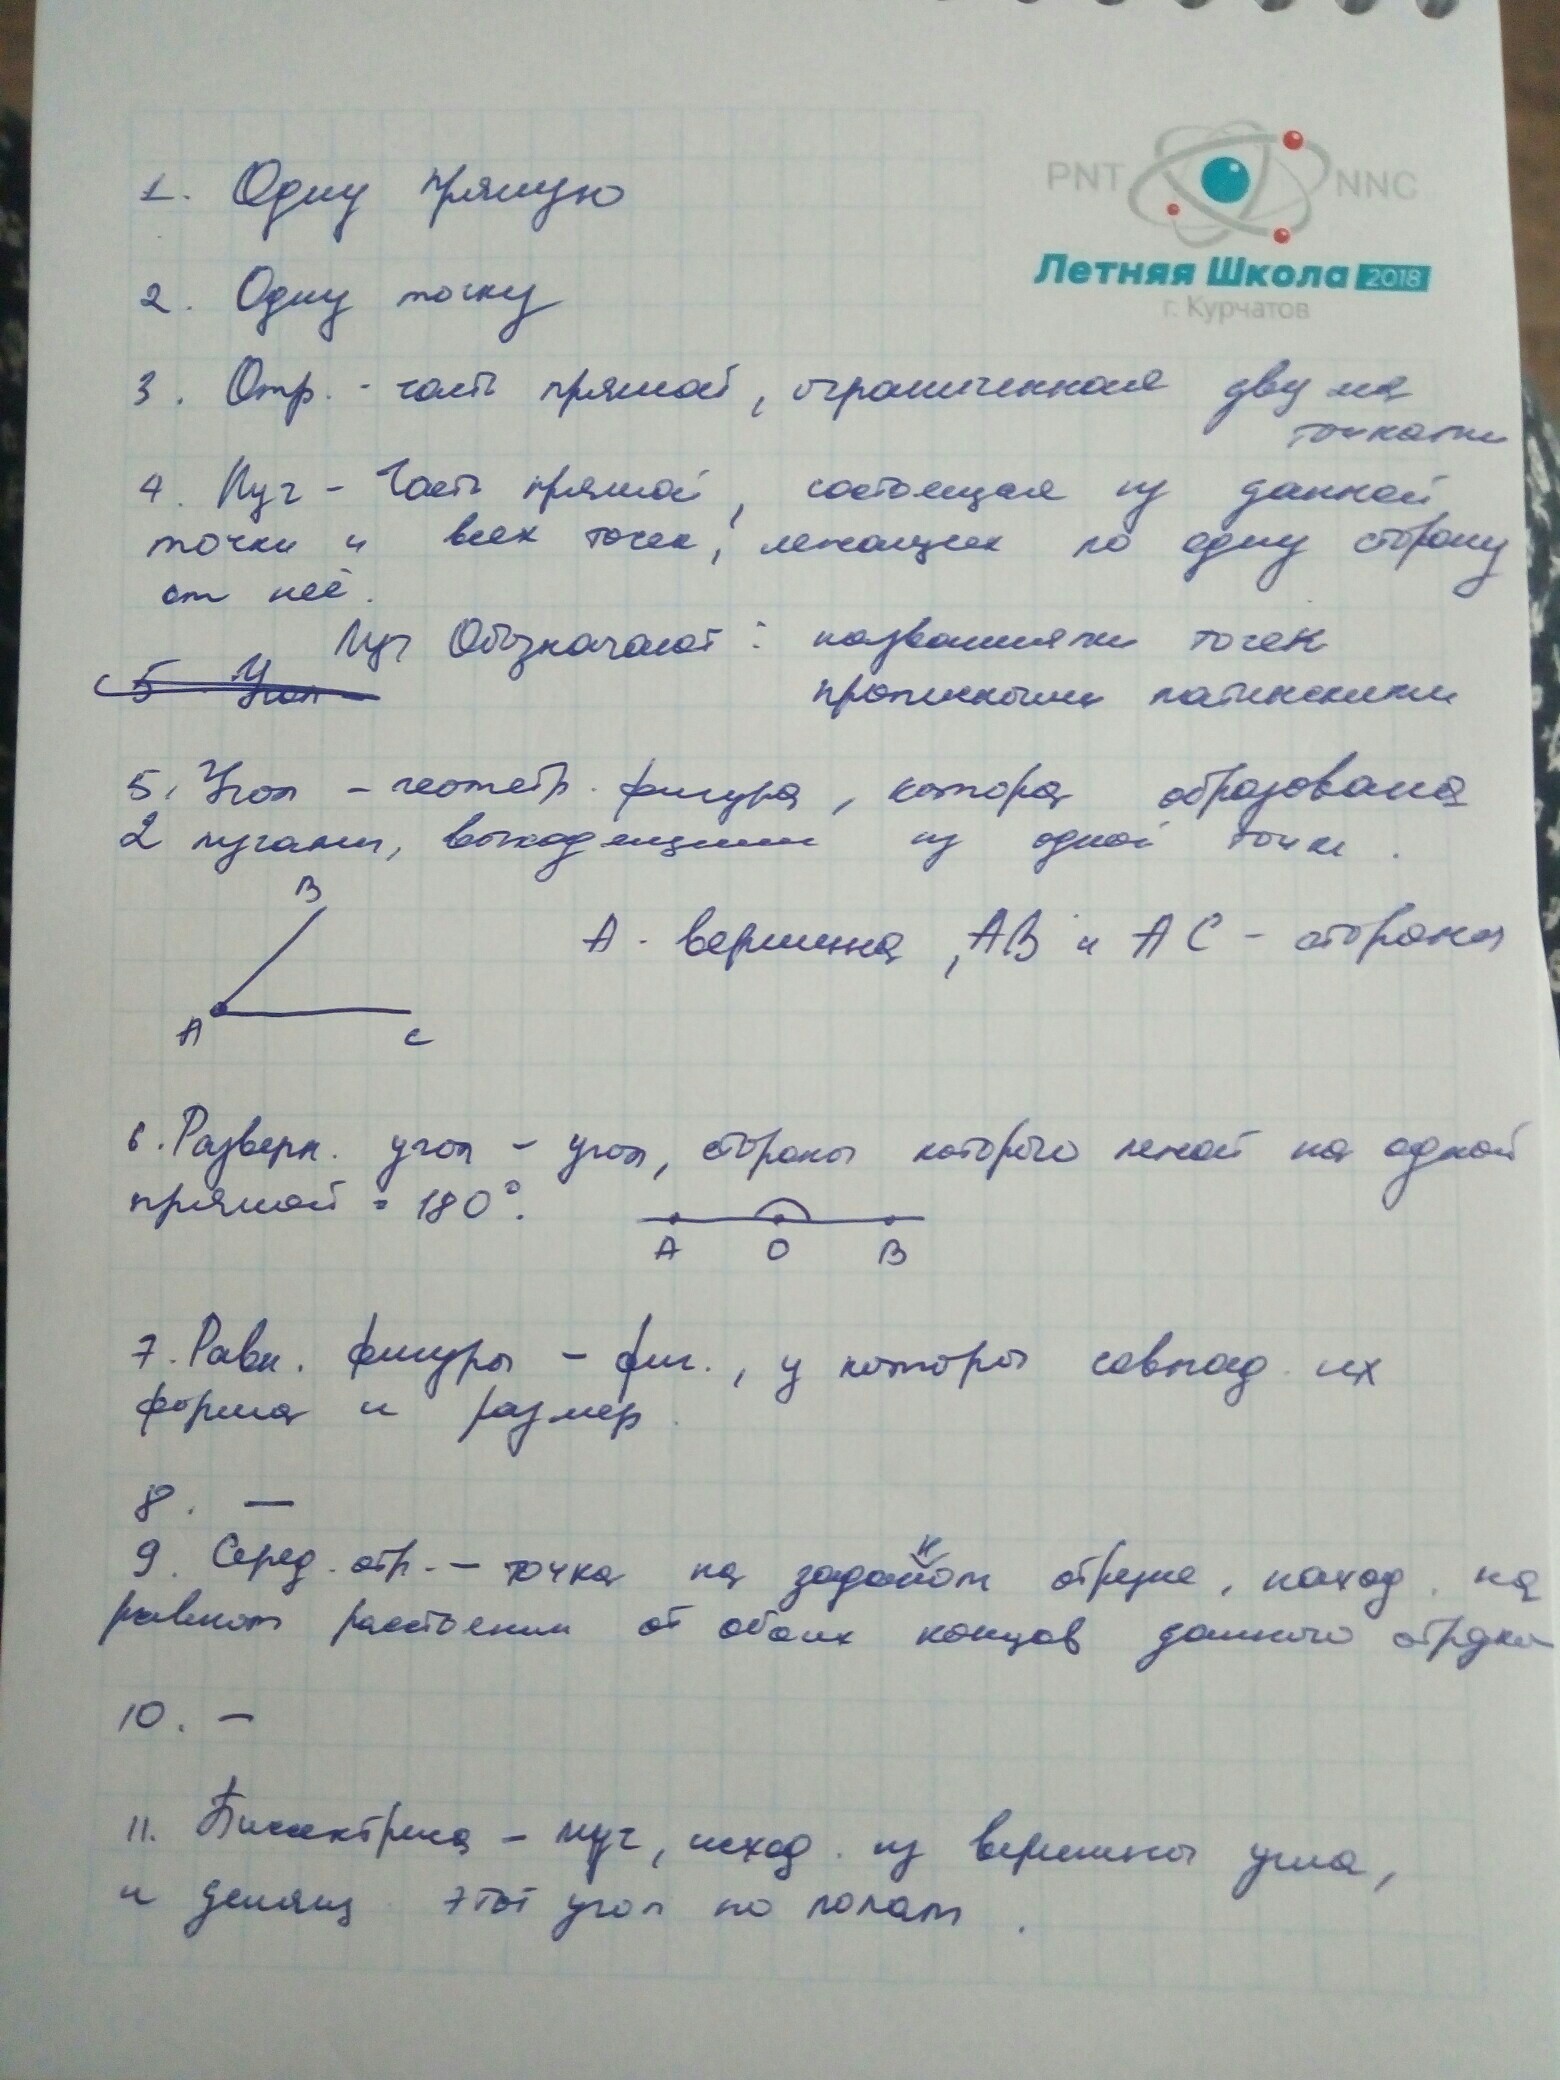 PNT NNC
Летняя Школа 2018
г. Курчатов
1. Одну прямую
2. Одну точку
3. Отр. - часть прямой, ограниченная двумя
точками
4. Луч - Часть прямой, состоящая из данной
точки и всех точек, лежащих по одну сторону
от неё.
Луч Обозначают: названиями точек
5 Угол -
прописными латинскими
5. Угол - геометр. фигура, котора образована
2 лучами, выходящими из одной точки.
B
A - вершина, AB и AC - стороны
A C
6. Разверн. угол - угол, стороны которого лежат на одной
прямой = 180°.
A O B
7. Равн. фигуры - фиг., у которы совпад. их
форма и размер.
8. —
9. Серед. отр. - точка на заданом отрезке, наход. на
н
равном расстоянии от обоих концов данного
10. —
11. Биссектриса - луч, исход. из вершины угла,
и делящ. этот угол по полам.